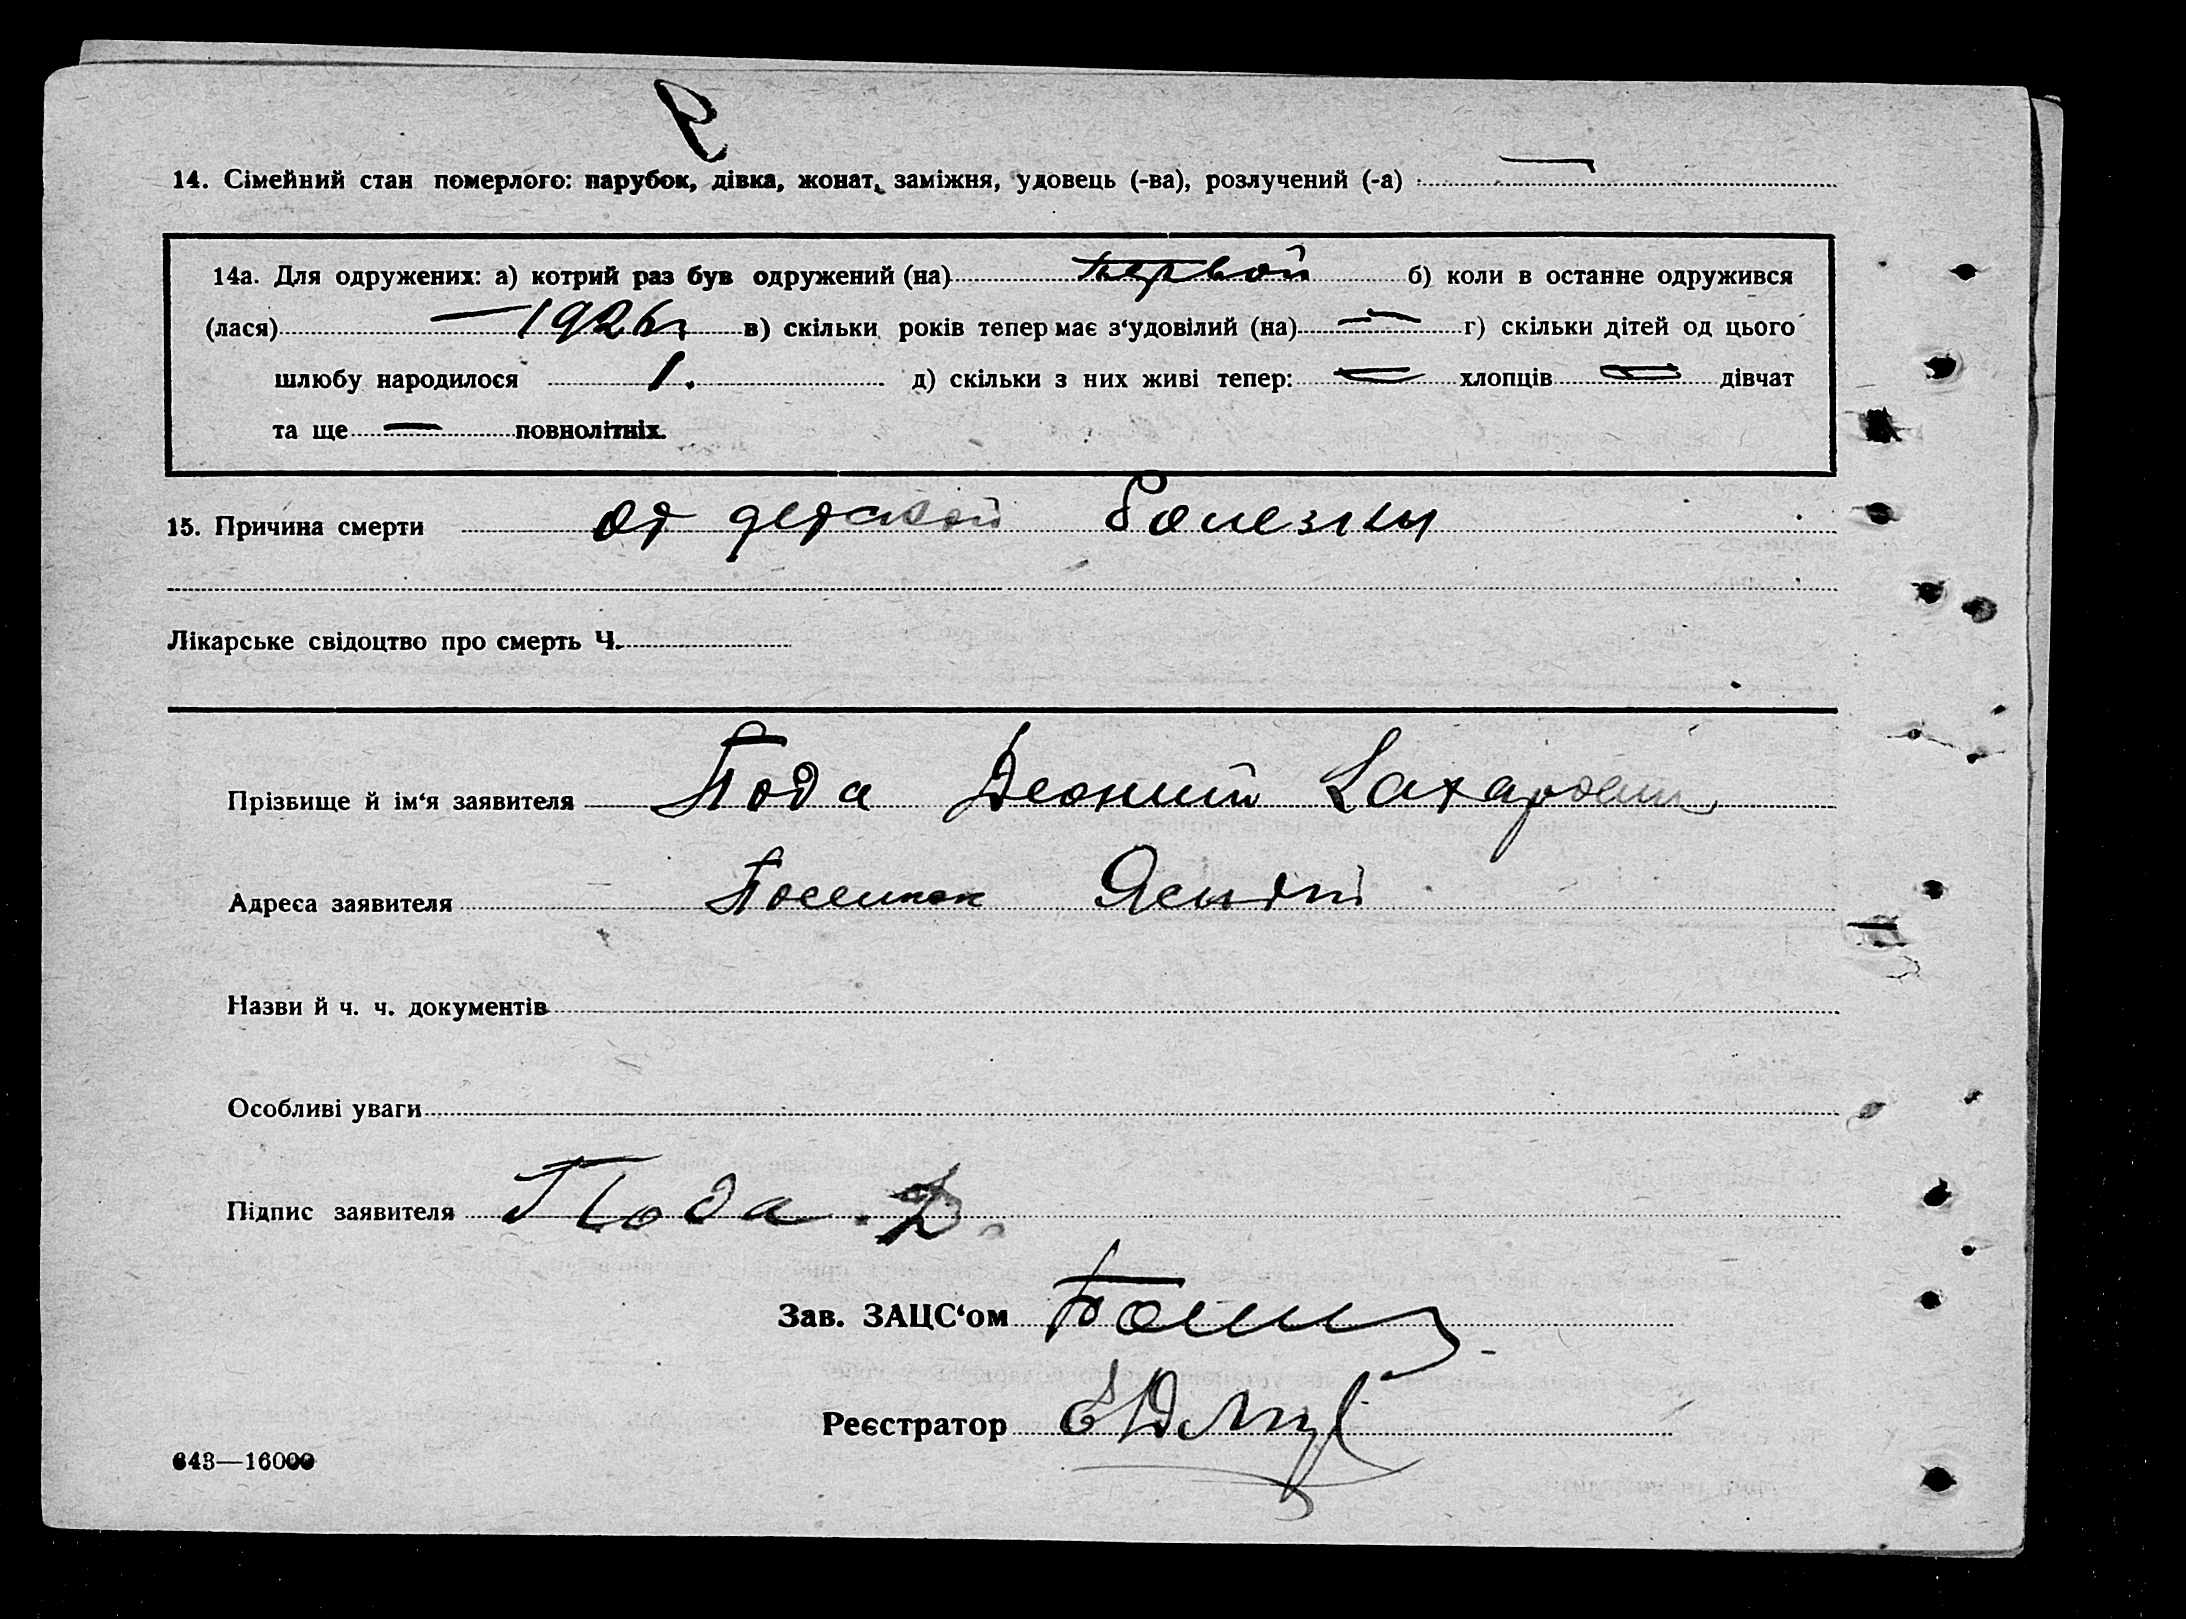 14. Сімейний стан померлого: парубок, дівка, жонат, заміжня, удовець (-ва), розлучений (-а)
14а. Для одружених: а) котрий раз був одружений (на) первой б) коли в останнє одружився
(лася) — 1926 г в) скільки років тепер має з‘удовілий (на) — г) скільки дітей од цього
шлюбу народилося 1. д) скільки з них живі тепер: — хлопців — дівчат
та ще — повнолітніх.
15. Причина смерти от детской болезни
Лікарське свідоцтво про смерть Ч.
Прізвище й ім‘я заявителя Пода Леонтий Захарович
Адреса заявителя Поселок
Назви й ч. ч. документів
Особливі уваги
Підпис заявителя Пода
Зав. ЗАЦС‘ом
Реєстратор
643—16000